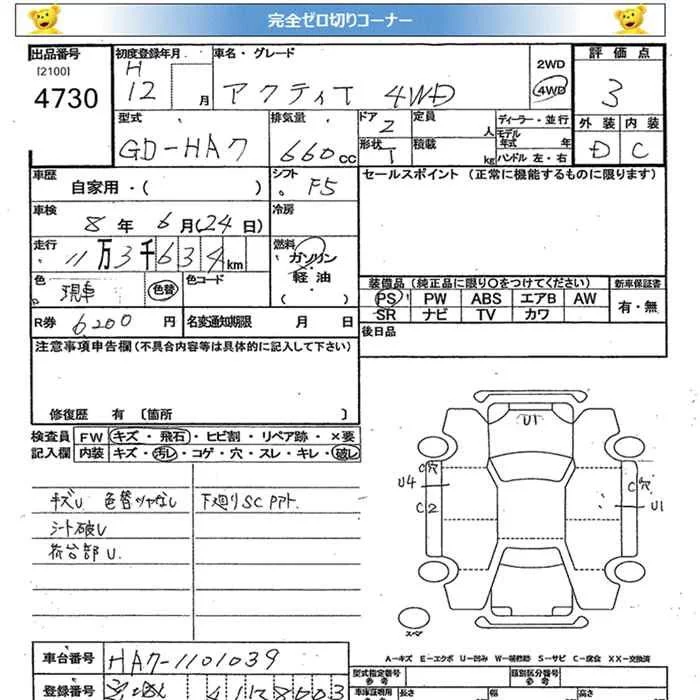 完全ゼロ切りコーナー
出品番号
[2100]
4730
初度登録年月
H
12 月
車名・グレード
アクティT 4WD
2WD
4WD
評価点
3
外装 内装
D C
型式
GD-HA7
排気量
660 cc
ドア
2
形状
T
定員
人
積載
kg
ディーラー・並行
モデル
年式 年
ハンドル 左・右
車歴
自家用・( )
シフト
F5
セールスポイント (正常に機能するものに限ります)
車検
8 年 6 月(24 日)
冷房
走行
11 万 3 千 6 3 4 km
燃料
ガソリン
・
軽油
( )
色
現車 色替
色コード
装備品 (純正品に限り○をつけてください)
PS PW ABS エアB AW
SR ナビ TV カワ
新車保証書
有・無
R券 6200 円
名変通知期限 月 日
後日品
注意事項申告欄(不具合内容等は具体的に記入して下さい)
修復歴 有 〔箇所 〕
検査員
記入欄
FW キズ・飛石・ヒビ割・リペア跡・×要
内装 キズ・汚レ・コゲ・穴・スレ・キレ・破レ
キズU 色替ツヤなし
下廻りSC
シート破レ
荷台部U
U1
C穴
U4
C2
C穴
U1
スペア
A-キズ E-エクボ U-凹み W-補修跡 S-サビ C-腐食 XX-交換済
車台番号 HA7-1101039
登録番号
型式指定番号
参考
類別区分番号
参考
車庫証明用
参考
長さ 幅 高さ